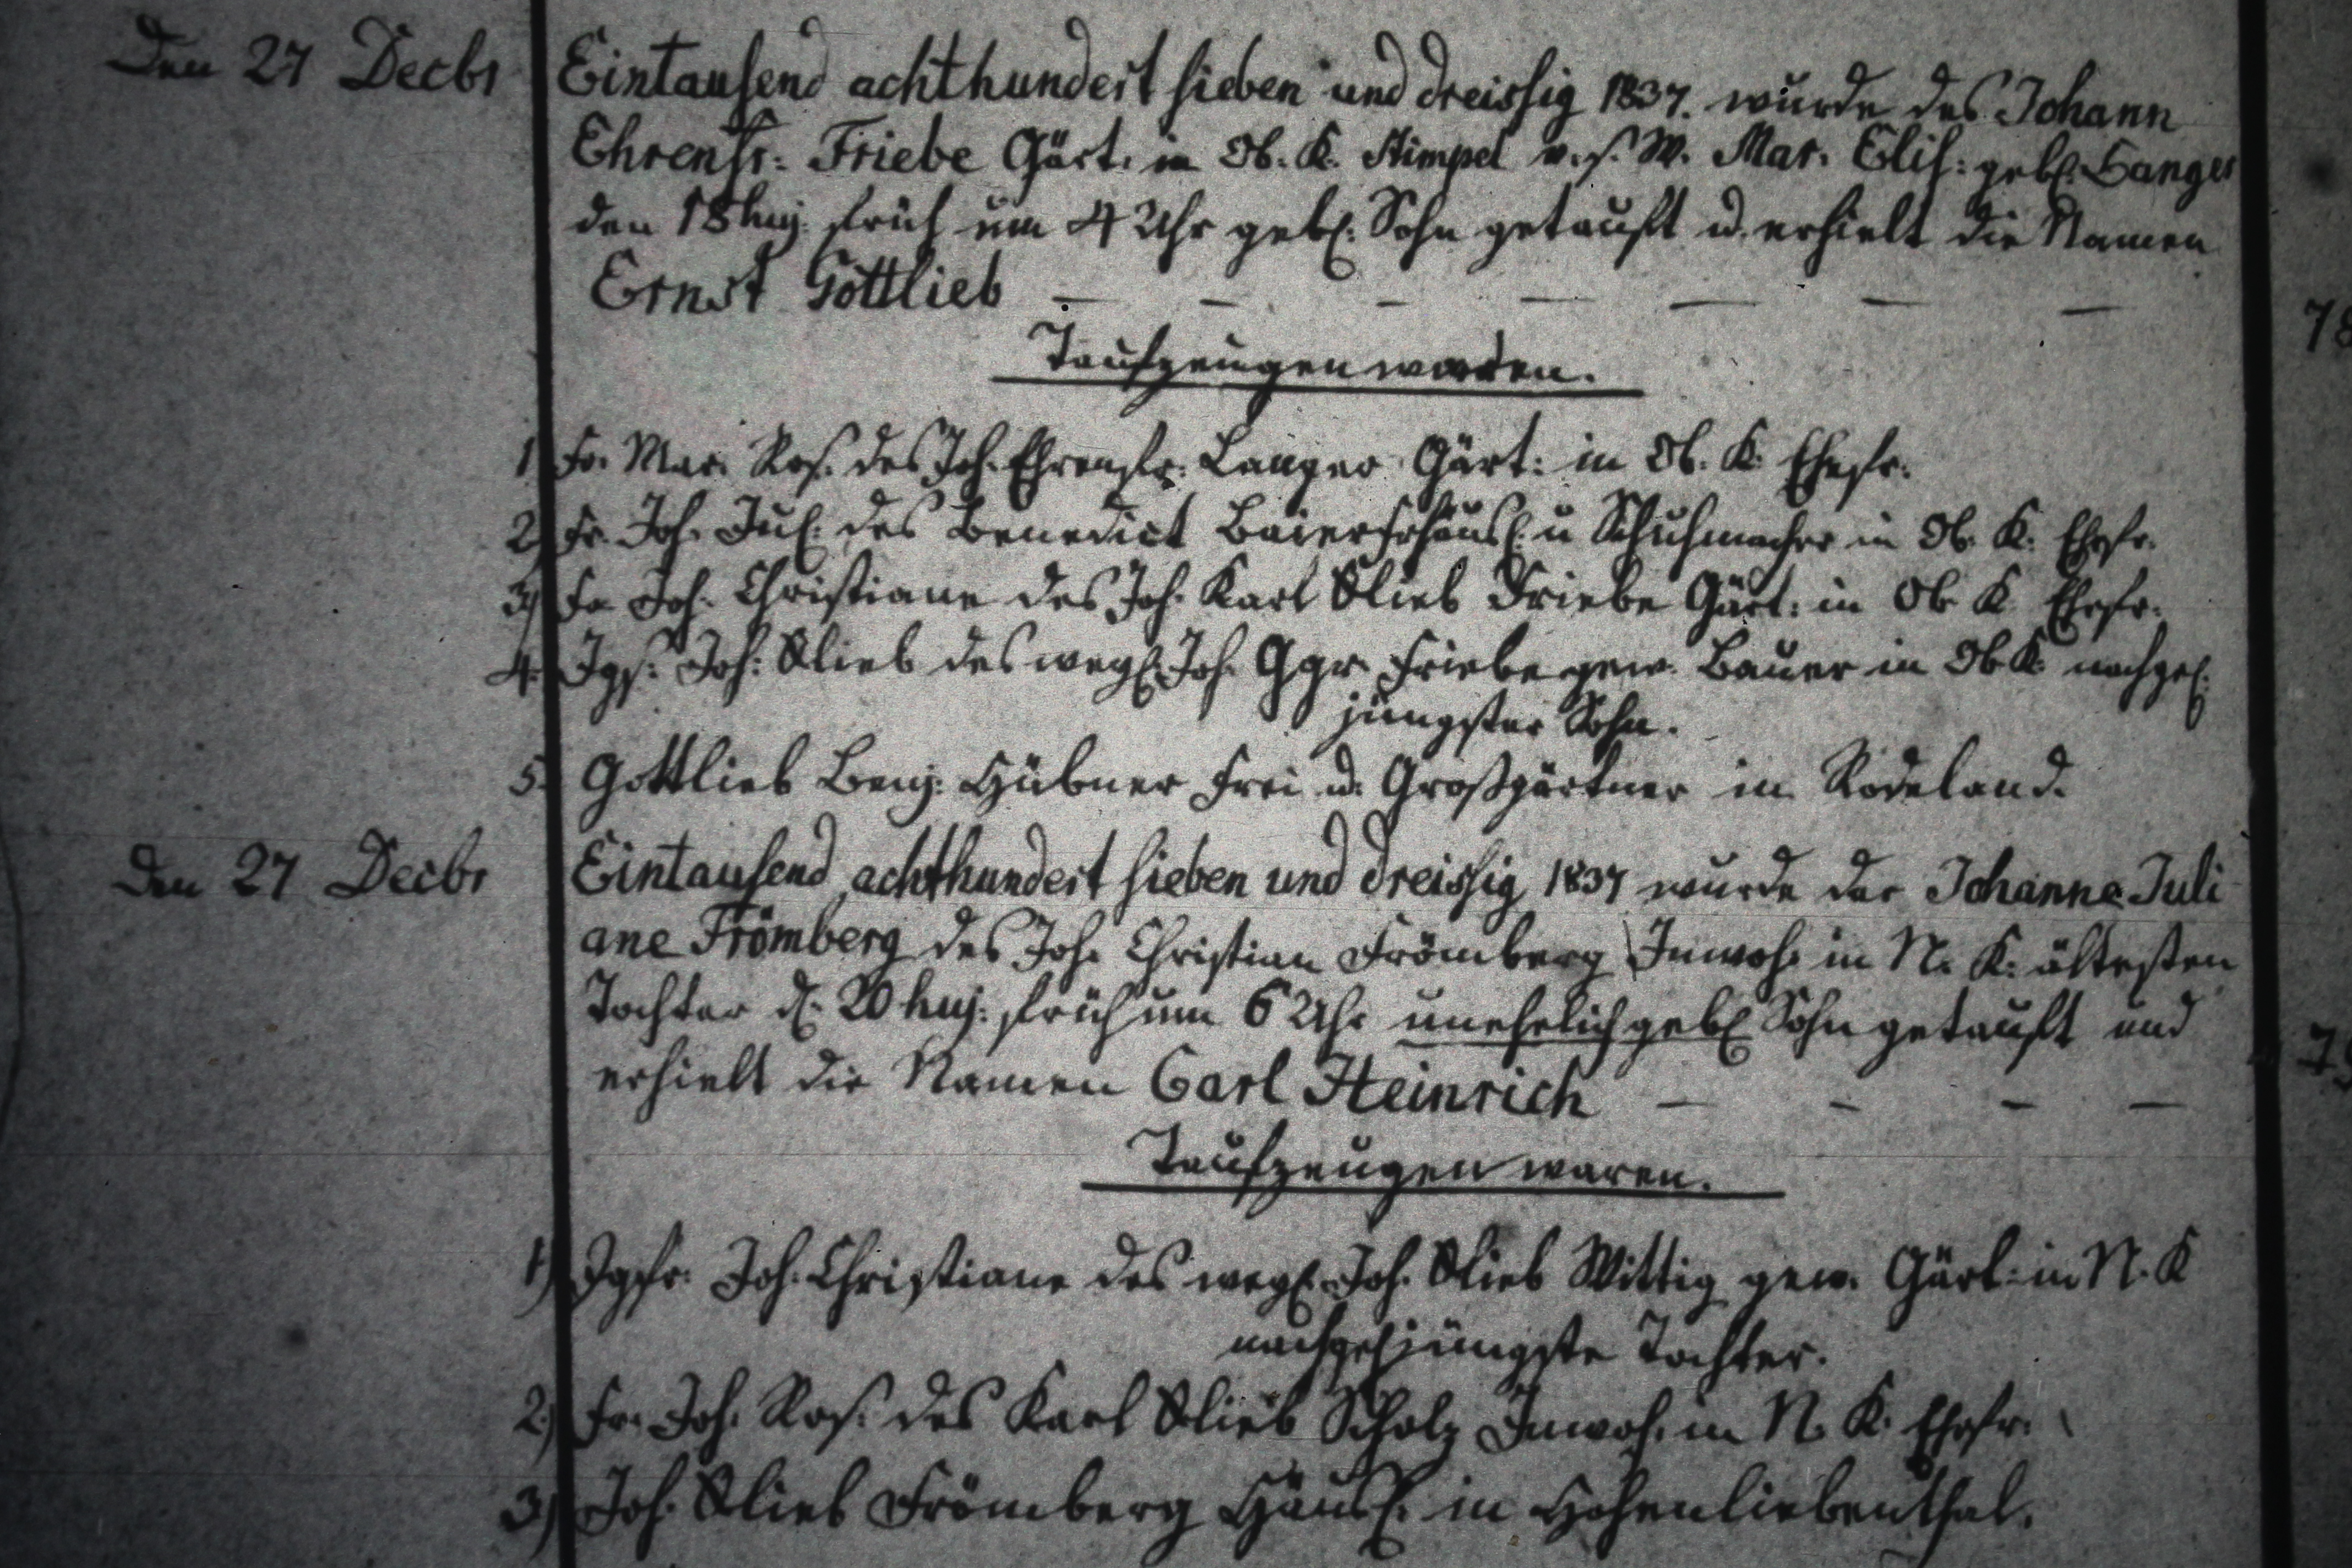 Den 27 Decbr
Eintausend achthundert sieben und dreissig 1837. wurde des Johann
Ehrenfr: Friebe Gärt. in Ob. K. Stimpel v. s. W. Mar. Elis: geb. Langer
den 18 huj. früh um 4 Uhr geb. Sohn getauft u. erhielt die Namen
Ernst Gottlieb — — — — — — —
Taufzeugen waren.
1 Fr. Mar. Ros. des Joh. Ehrenfr. Langer Gärt: in Ob. K. Ehefr.
2) Fr. Joh. Jul. des Benedict Baier Frhäusl. u Schuhmacher in Ob. K. Ehefr.
3) Fr. Joh. Christiane des Joh. Karl Glieb Friebe Gärt: in Ob K. Ehefr.
4. Jgs. Joh: Glieb des wegl. Joh. Ggr. Friebe gew. Bauer in Ob K. nachgel.
jüngster Sohn.
5. Gottlieb Benj. Hübner Frei u. Großgärtner in Rodeland.
Den 27 Decbr
Eintausend achthundert sieben und dreissig 1837 wurde der Johanne Juli
ane Frömberg des Joh. Christian Frömberg Inwoh. in N. K. ältesten
Tochter d. 20 huj: früh um 6 Uhr unehelich geb. Sohn getauft und
erhielt die Namen Carl Heinrich — — — —
Taufzeugen waren.
1) Jgfr. Joh. Christiane des wegl. Joh. Glieb Wittig gew. Gärt: in N. K
nachgel. jüngste Tochter.
2) Fr. Joh. Ros. des Karl Glieb Scholz Inwoh. in N. K. Ehefr.
3) Joh. Glieb Frömberg Häusl. in Hohenliebenthal.